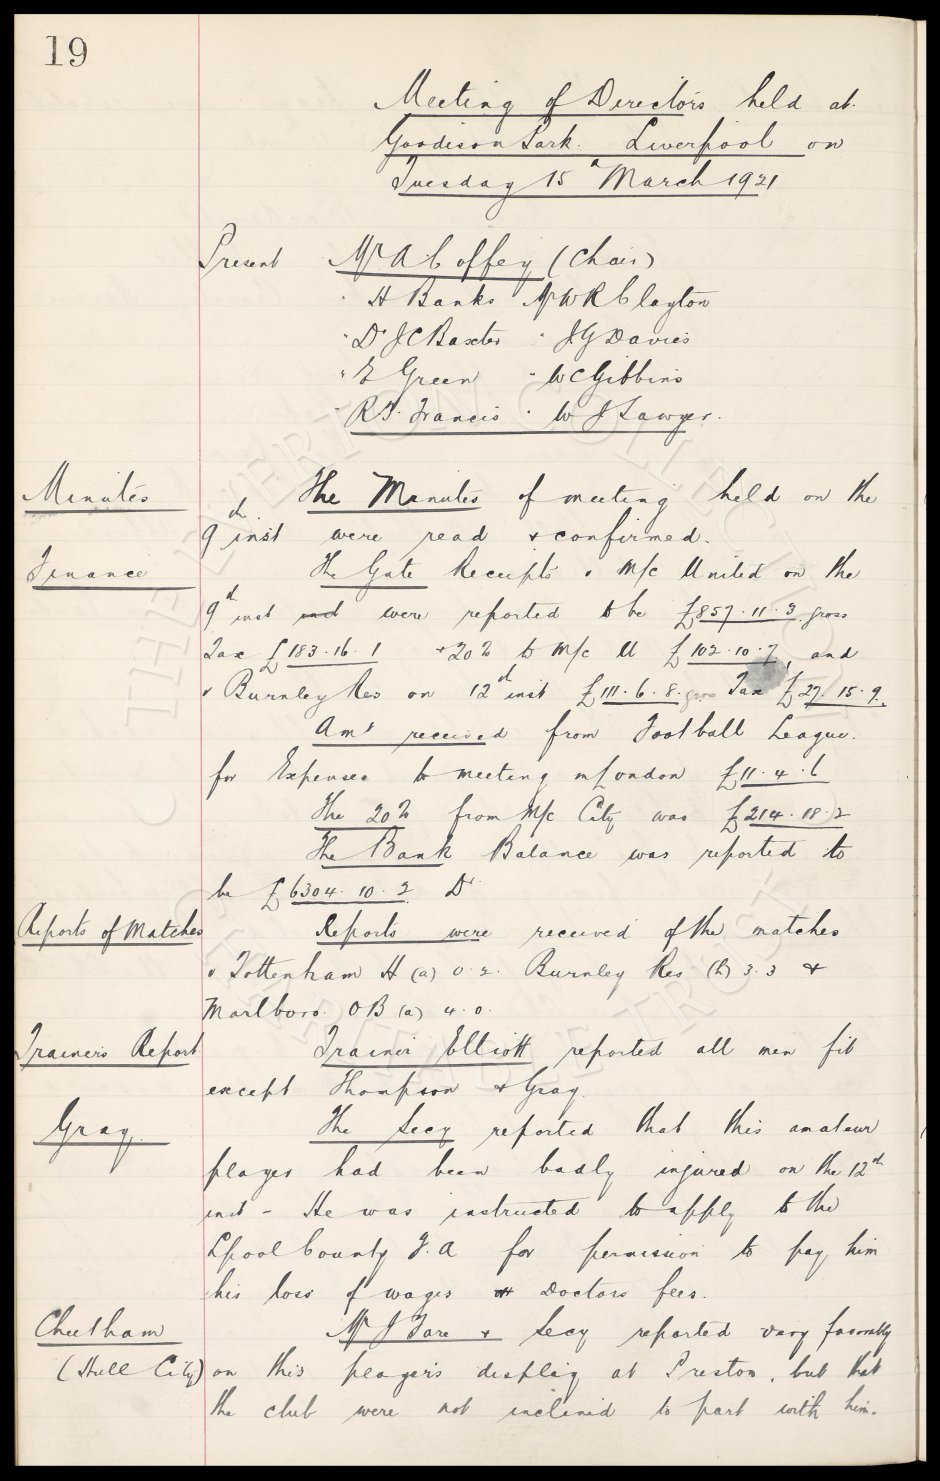 19
Meeting of Directors held at
Goodison Park. Liverpool on
Tuesday 15th March 1921
Present Mr A Coffey (Chair)
" H Banks Mr W R Clayton
" Dr J C Baxter " J G Davies
" E Green " W C Gibbins
" R T. Francis " W J Sawyer.
Minutes The Minutes of meeting held on the
9th inst were read & confirmed.
Finance The Gate Receipts v M/c United on the
9th inst inst were reported to be £857.11.3 gross
Tax £183.16.1 & 20% to M/c U £102.10.7, and
v Burnley Res on 12th inst £111.6.8. gross Tax £27.15.9.
Amt received from Football League.
for Expenses to meeting in London £11.4.6
The 20% from M/c City was £214.18.2
The Bank Balance was reported to
be £6304.10.2 Dr.
Reports of Matches Reports were received of the matches
v Tottenham H (a) 0.2. Burnley Res (h) 3.3 &
Marlboro. O B (a) 4.0.
Trainers Report Trainer Elliott reported all men fit
except Thompson & Gray.
Gray. The Secy reported that this amateur
player had been badly injured on the 12th
inst - He was instructed to apply to the
Lpool County F.A for permission to pay him
his loss of wages Doctors fees.
Cheetham Mr J Fare & Secy reported very favorably
(Hull City) on this player's display at Preston, but that
the club were not inclined to part with him.
THE EVERTON COLLECTION
CHARITABLE TRUST